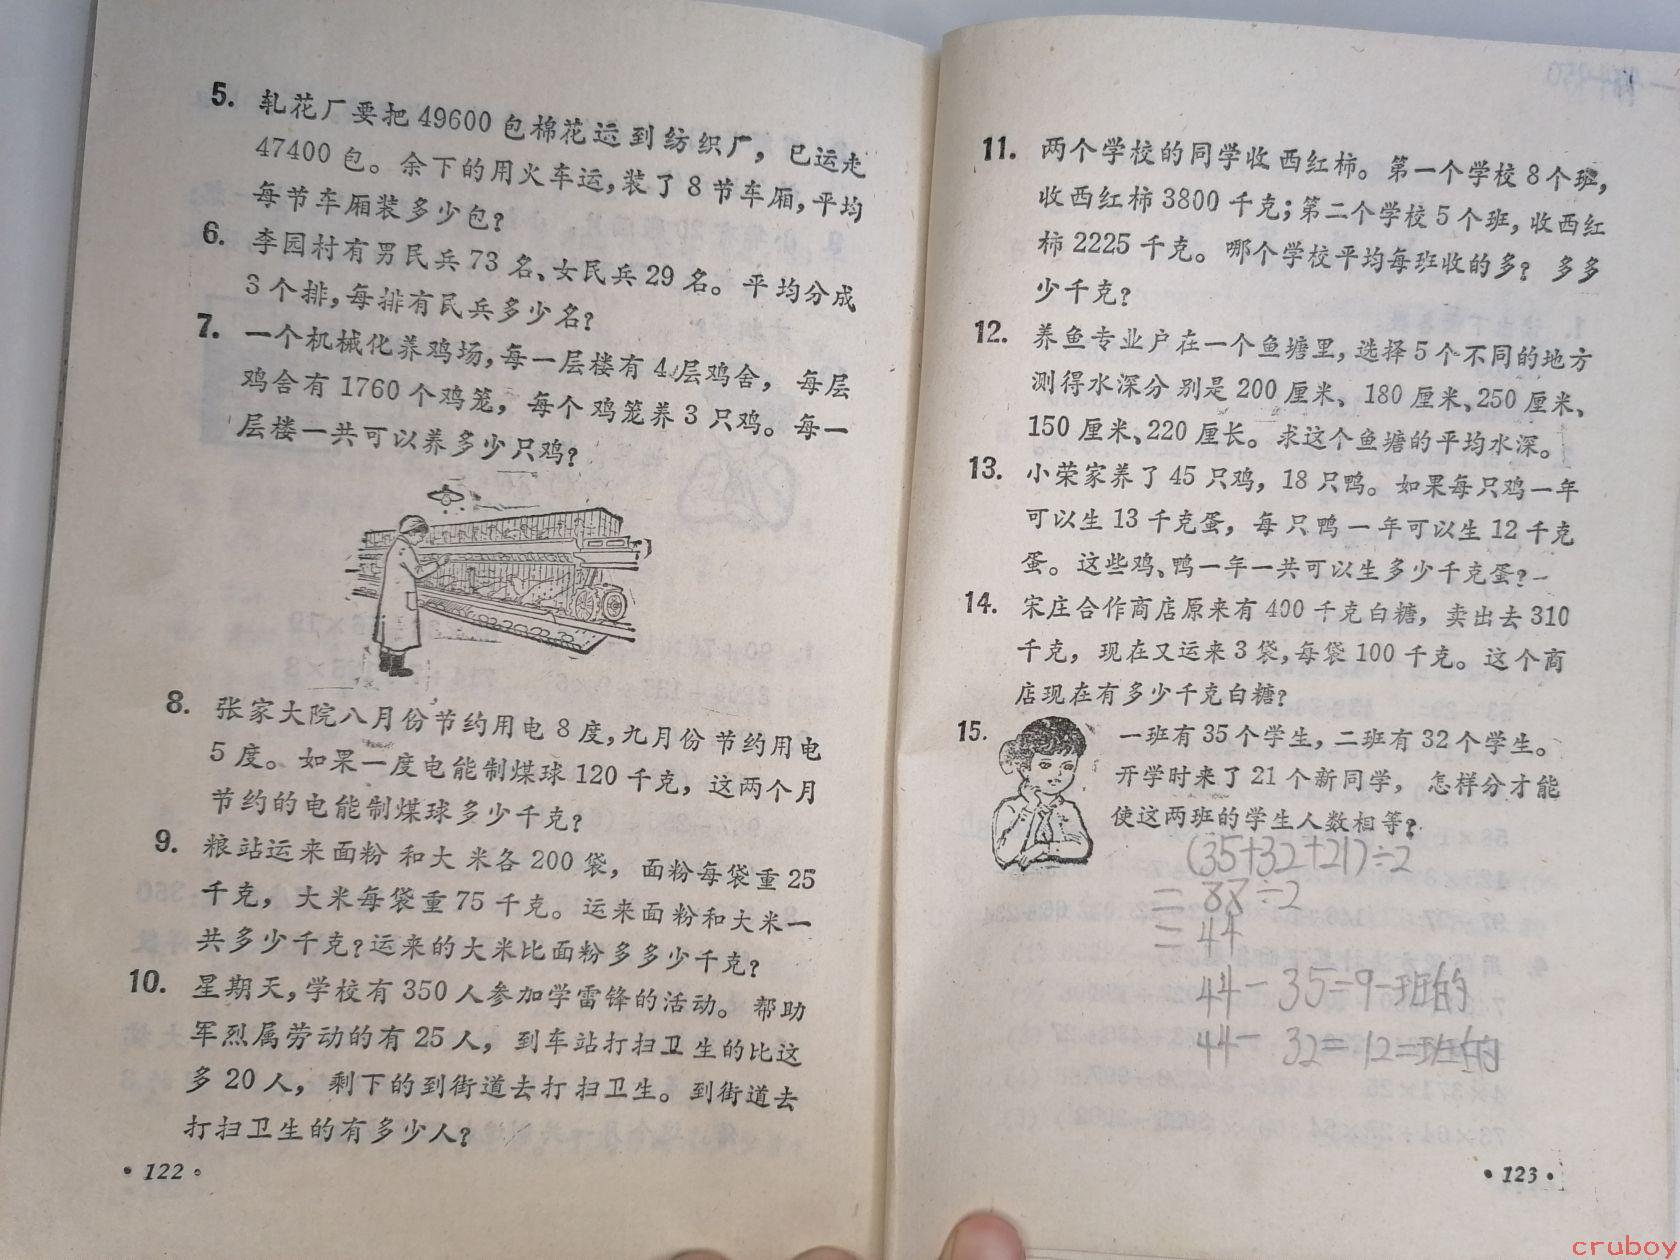 5. 轧花厂要把49600包棉花运到纺织厂，已运走
47400包。余下的用火车运，装了8节车厢，平均
每节车厢装多少包？
6. 李园村有男民兵73名、女民兵29名。平均分成
3个排，每排有民兵多少名？
7. 一个机械化养鸡场，每一层楼有4层鸡舍，每层
鸡舍有1760个鸡笼，每个鸡笼养3只鸡。每一
层楼一共可以养多少只鸡？
8. 张家大院八月份节约用电8度，九月份节约用电
5度。如果一度电能制煤球120千克，这两个月
节约的电能制煤球多少千克？
9. 粮站运来面粉和大米各200袋，面粉每袋重25
千克，大米每袋重75千克。运来面粉和大米一
共多少千克？运来的大米比面粉多多少千克？
10. 星期天，学校有350人参加学雷锋的活动。帮助
军烈属劳动的有25人，到车站打扫卫生的比这
多20人，剩下的到街道去打扫卫生。到街道去
打扫卫生的有多少人？
·122·
11. 两个学校的同学收西红柿。第一个学校8个班，
收西红柿3800千克；第二个学校5个班，收西红
柿2225千克。哪个学校平均每班收的多？多多
少千克？
12. 养鱼专业户在一个鱼塘里，选择5个不同的地方
测得水深分别是200厘米、180厘米、250厘米、
150厘米、220厘长。求这个鱼塘的平均水深。
13. 小荣家养了45只鸡，18只鸭。如果每只鸡一年
可以生13千克蛋，每只鸭一年可以生12千克
蛋。这些鸡、鸭一年一共可以生多少千克蛋？
14. 宋庄合作商店原来有400千克白糖，卖出去310
千克，现在又运来3袋，每袋100千克。这个商
店现在有多少千克白糖？
15. 一班有35个学生，二班有32个学生。
开学时来了21个新同学，怎样分才能
使这两班的学生人数相等？
(35+32+21)÷2
=88÷2
=44
44-35=9一班的
44-32=12二班的
·123·
cruboy